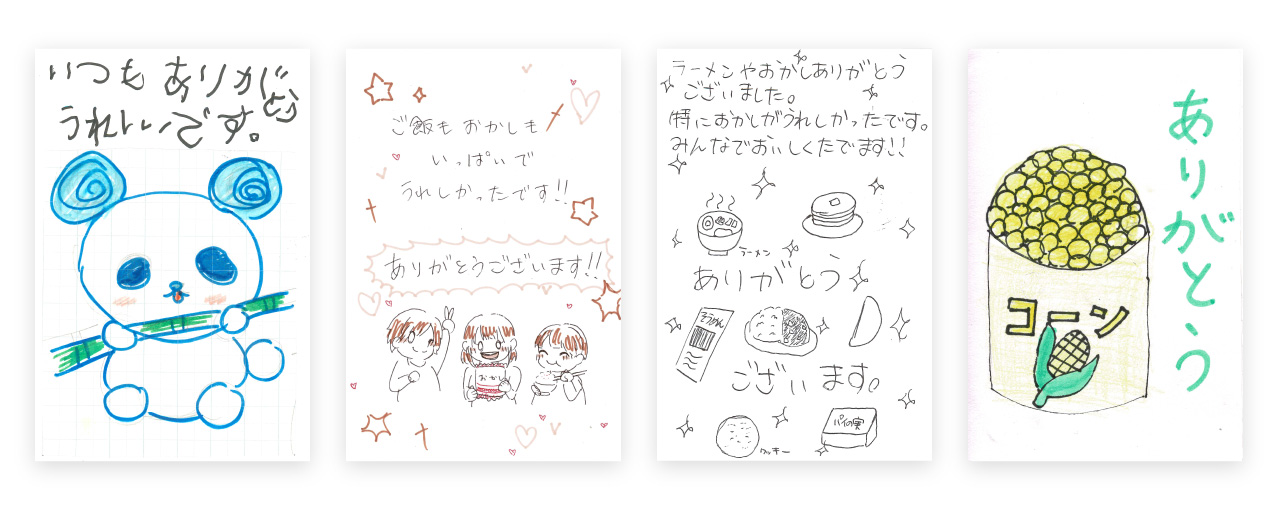 いつも ありがとう
うれしいです。
ご飯も おかしも
いっぱいで
うれしかったです!!
ありがとうございます!!
おかし
ラーメンやおかしありがとう
ございました。
特におかしがうれしかったです。
みんなでおいしくたでます!!
ラーメン
ありがとう
そうめん
ございます。
クッキー
パイの実
ありがとう
コーン